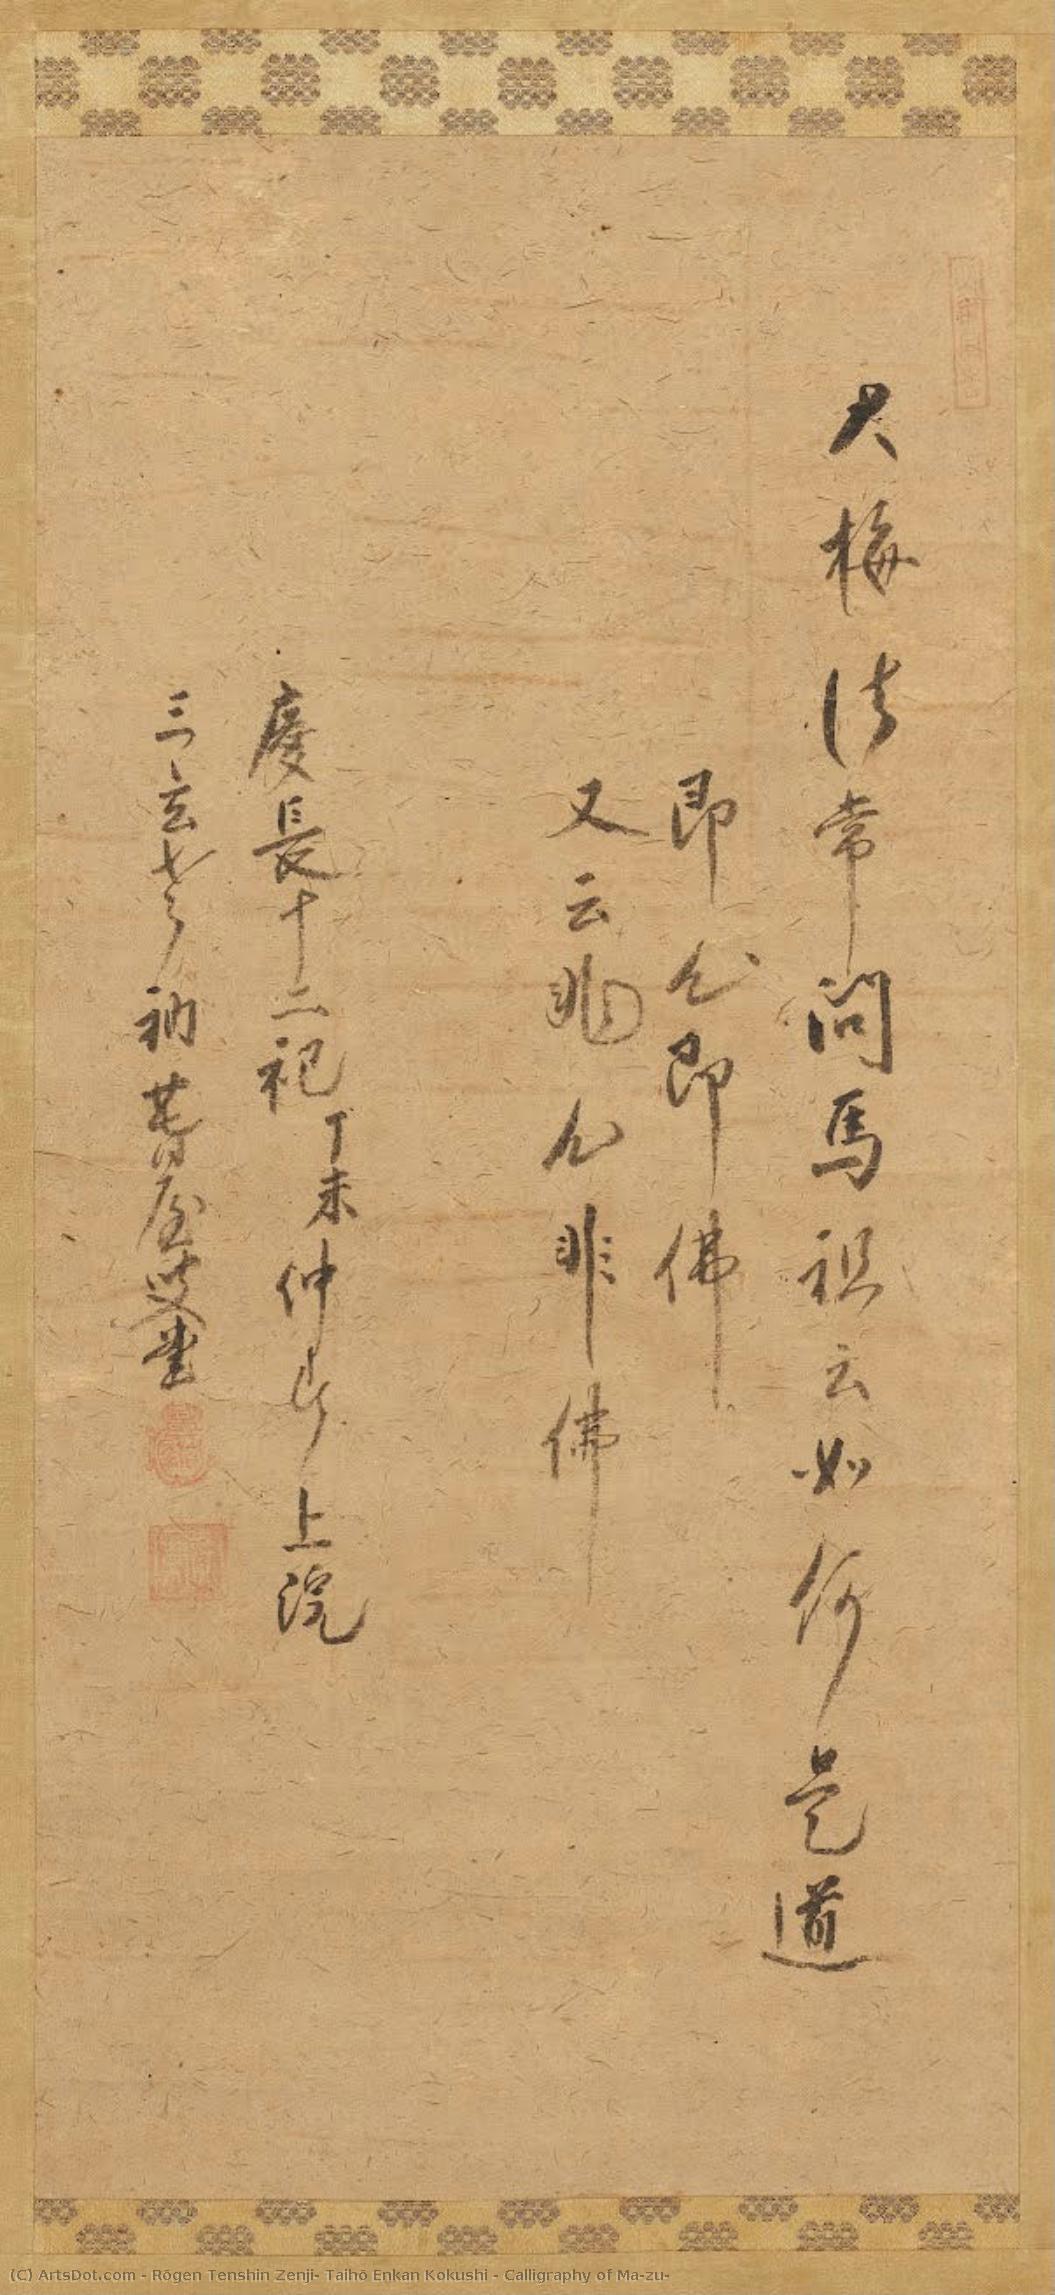 大梅法常問馬祖云如何是道
即心即佛
又云非心非佛
慶長十二祀丁未仲上浣
三玄老衲春屋叟書
(C) ArtsDot.com - Rōgen Tenshin Zenji- Taihō Enkan Kokushi - Calligraphy of Ma-zu-